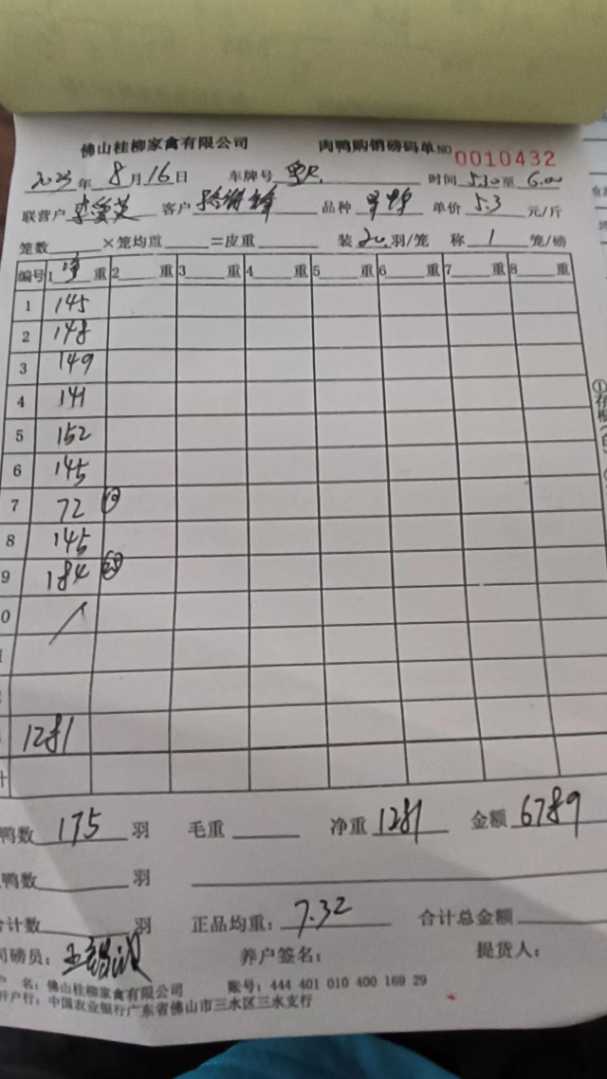 佛山桂柳家禽有限公司 肉鸭购销磅码单 NO 0010432
2023年 8月16日 车牌号 时间 5.30至 6.00
联营户 李爱 客户 品种 单价 5.3 元/斤
笼数 ×笼均重 =皮重 装 20 羽/笼 称 1 笼/磅
编号 1 净 重 2 重 3 重 4 重 5 重 6 重 7 重 8 重
1 145
2 148
3 149
4 141
5 152
6 145
7 72
8 145
9 184
0
1281
计
鸭数 175 羽 毛重 净重 1281 金额 6789
鸭数 羽
合计数 羽 正品均重: 7.32 合计总金额
司磅员: 养户签名: 提货人:
户 名: 佛山桂柳家禽有限公司 账号: 444 401 010 400 169 29
开户行: 中国农业银行广东省佛山市三水区三水支行